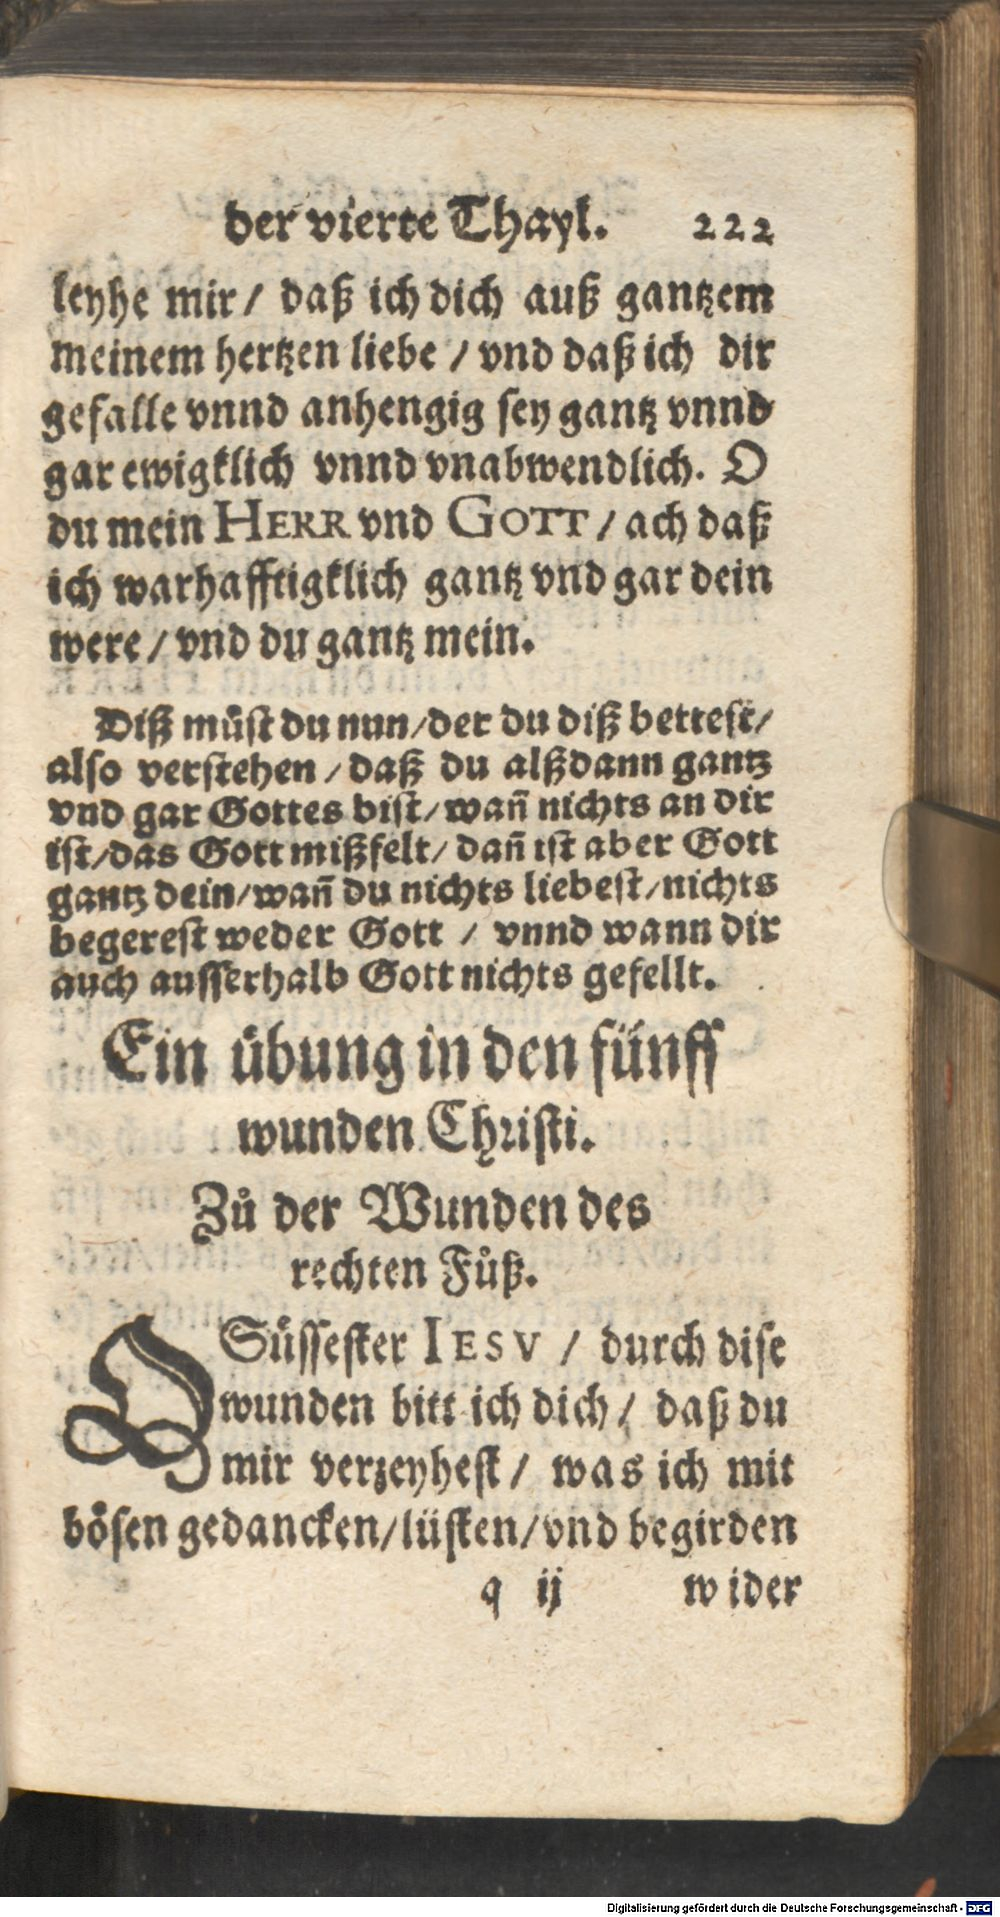 der vierte Thayl. 222
leyhe mir/ daß ich dich auß gantzem
meinem hertzen liebe / vnd daß ich dir
gefalle vnnd anhengig sey gantz vnnd
gar ewigklich vnnd vnabwendlich. O
du mein HERR vnd GOTT / ach daß
ich warhafftigklich gantz vnd gar dein
were / vnd du gantz mein.
Diß můst du nun/der du diß bettest/
also verstehen / daß du alßdann gantz
vnd gar Gottes bist/wañ nichts an dir
ist/das Gott mißfelt/ dañ ist aber Gott
gantz dein/wañ du nichts liebest/nichts
begerest weder Gott / vnnd wann dir
auch ausserhalb Gott nichts gefellt.
Ein übung in den fünff
wunden Christi.
Zů der Wunden des
rechten Fůß.
O Süssester IESV / durch dise
wunden bitt ich dich/ daß du
mir verzeyhest/ was ich mit
bösen gedancken/lüsten/vnd begirden
q ij wider
Digitalisierung gefördert durch die Deutsche Forschungsgemeinschaft - DFG